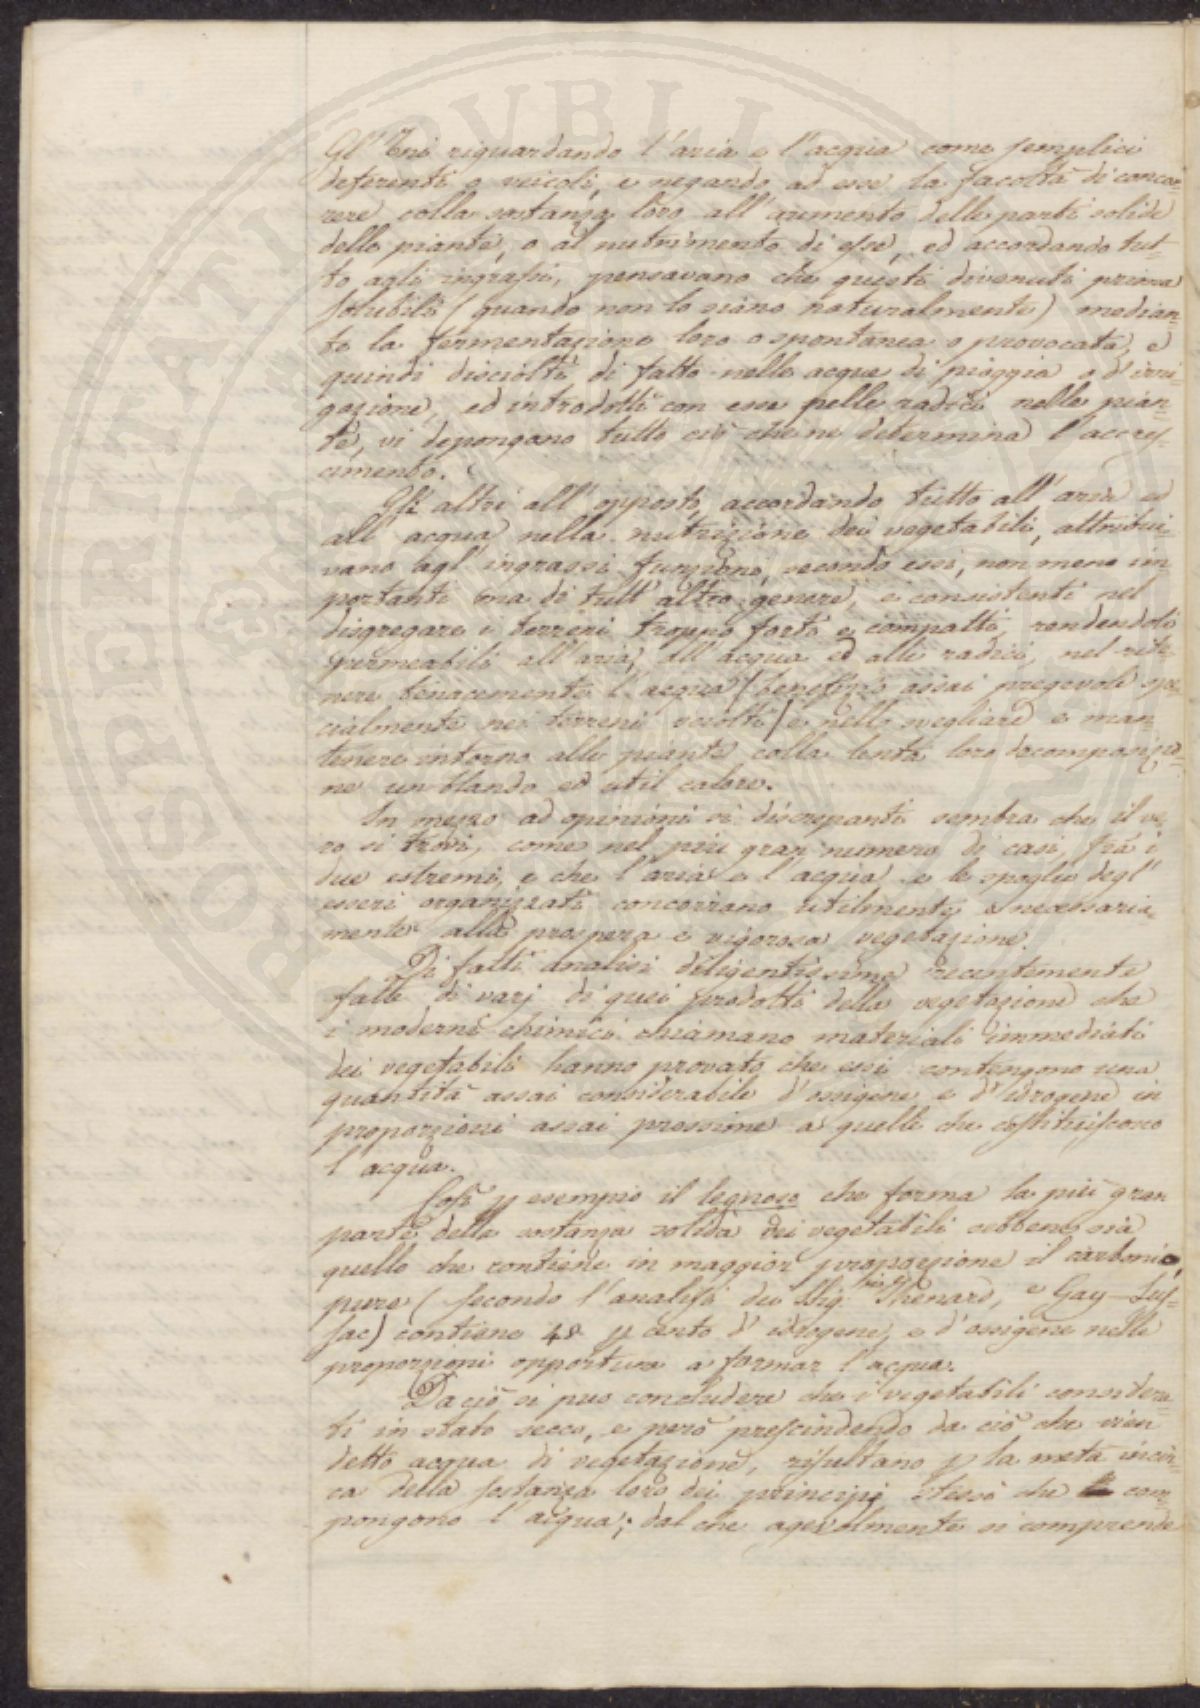 Gl' Uni riguardando l'aria e l'acqua come semplici
deferenti o veicoli, e negando ad esse la facoltà di concor-
rere colla sostanza loro all'aumento delle parti solide
delle piante, o al nutrimento di esse, ed accordando tut-
to agli ingrassi, pensavano che questi divenuti prima
solubili (quando non lo siano naturalmente) median-
te la fermentazione loro o spontanea o provocata, e
quindi disciolti di fatto nelle acque di pioggia o d'irri-
gazione, ed introdotti con esse pelle radici nelle pian-
te, vi depongano tutto ciò che ne determina l'accres-
cimento.
Gli altri all'opposto, accordando tutto all'aria ed
all'acqua nella nutrizione dei vegetabili, attribui-
vano agl'ingrassi funzioni, secondo essi, non meno im
portanti ma di tutt'altro genere, e consistenti nel
disgregare i terreni troppo forti e compatti, rendendoli
permeabili all'aria, all'acqua ed alle radici, nel rite-
nere tenacemente l'acqua (benefizio assai pregevole spe-
cialmente nei terreni sciolti) e nello svegliare e man-
tenere intorno alle piante colla lenta loro decomposizio-
ne un blando ed util calore.
In mezzo ad opinioni sì discrepanti sembra che il ve-
ro si trovi, come nel più gran numero di casi, frà i
due estremi, e che l'aria e l'acqua e le spoglie degl'
esseri organizzati concorrano utilmente, e necessaria-
mente alla prospera e vigorosa vegetazione.
Di fatti analisi diligentissime recentemente
fatte di varj di quei prodotti della vegetazione che
i moderni chimici chiamano materiali immediati
dei vegetabili hanno provato che essi contengono una
quantità assai considerabile d'ossigene e d'idrogene in
proporzioni assai prossime a quelle che costituiscono
l'acqua.
Così p esempio il legnoso che forma la più gran
parte della sostanza solida dei vegetabili sebbene sia
quello che contiene in maggior proporzione il carbonio,
pure (secondo l'analisi dei Sig.ri Thenard, e Gay-Lus-
sac) contiene 48 p cento d'idrogene, e d'ossigene nelle
proporzioni opportune a formar l'acqua.
Da ciò si può concludere che i vegetabili considera-
ti in stato secco, e però prescindendo da ciò che vien
detto acqua di vegetazione, risultano p la metà incir-
ca della sostanza loro dei principj stessi che com-
pongono l'acqua; dal che agevolmente si comprende